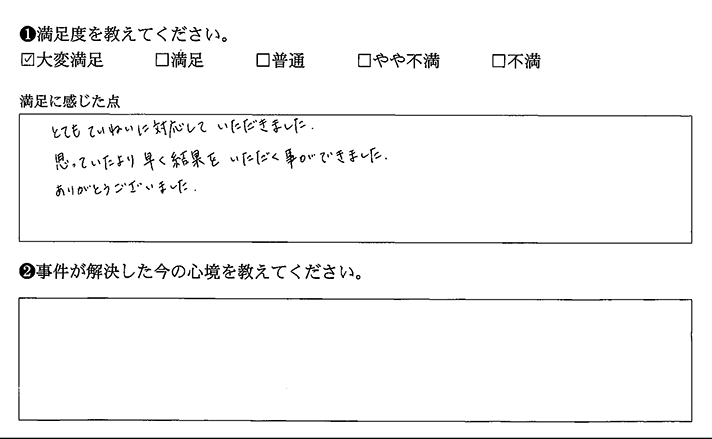 ❶満足度を教えてください。
☑大変満足 □満足 □普通 □やや不満 □不満
満足に感じた点
とても ていねいに対応して いただきました.
思っていたより 早く結果を いただく事ができました.
ありがとうございました.
❷事件が解決した今の心境を教えてください。